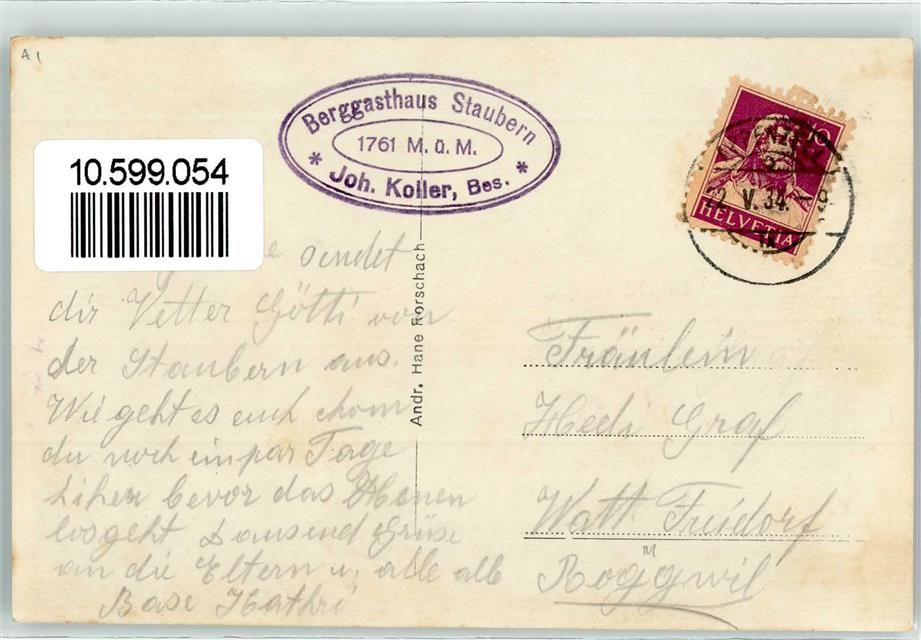 A 1
10.599.054
Berggasthaus Staubern
1761 M. ü. M.
* Joh. Koller, Bes. *
10
HELVETIA
V. 34. - 9
Andr. Hane Rorschach
sendet
dir Vetter Götti von
der Staubern aus.
Wie geht es euch chom
du noch ein par Tage
bevor das Heuen
losgeht Tausend Grüse
an die Eltern u. alle alle
Base Kathri
Fräulein
Hedi Graf
Watt Freidorf
Roggwil